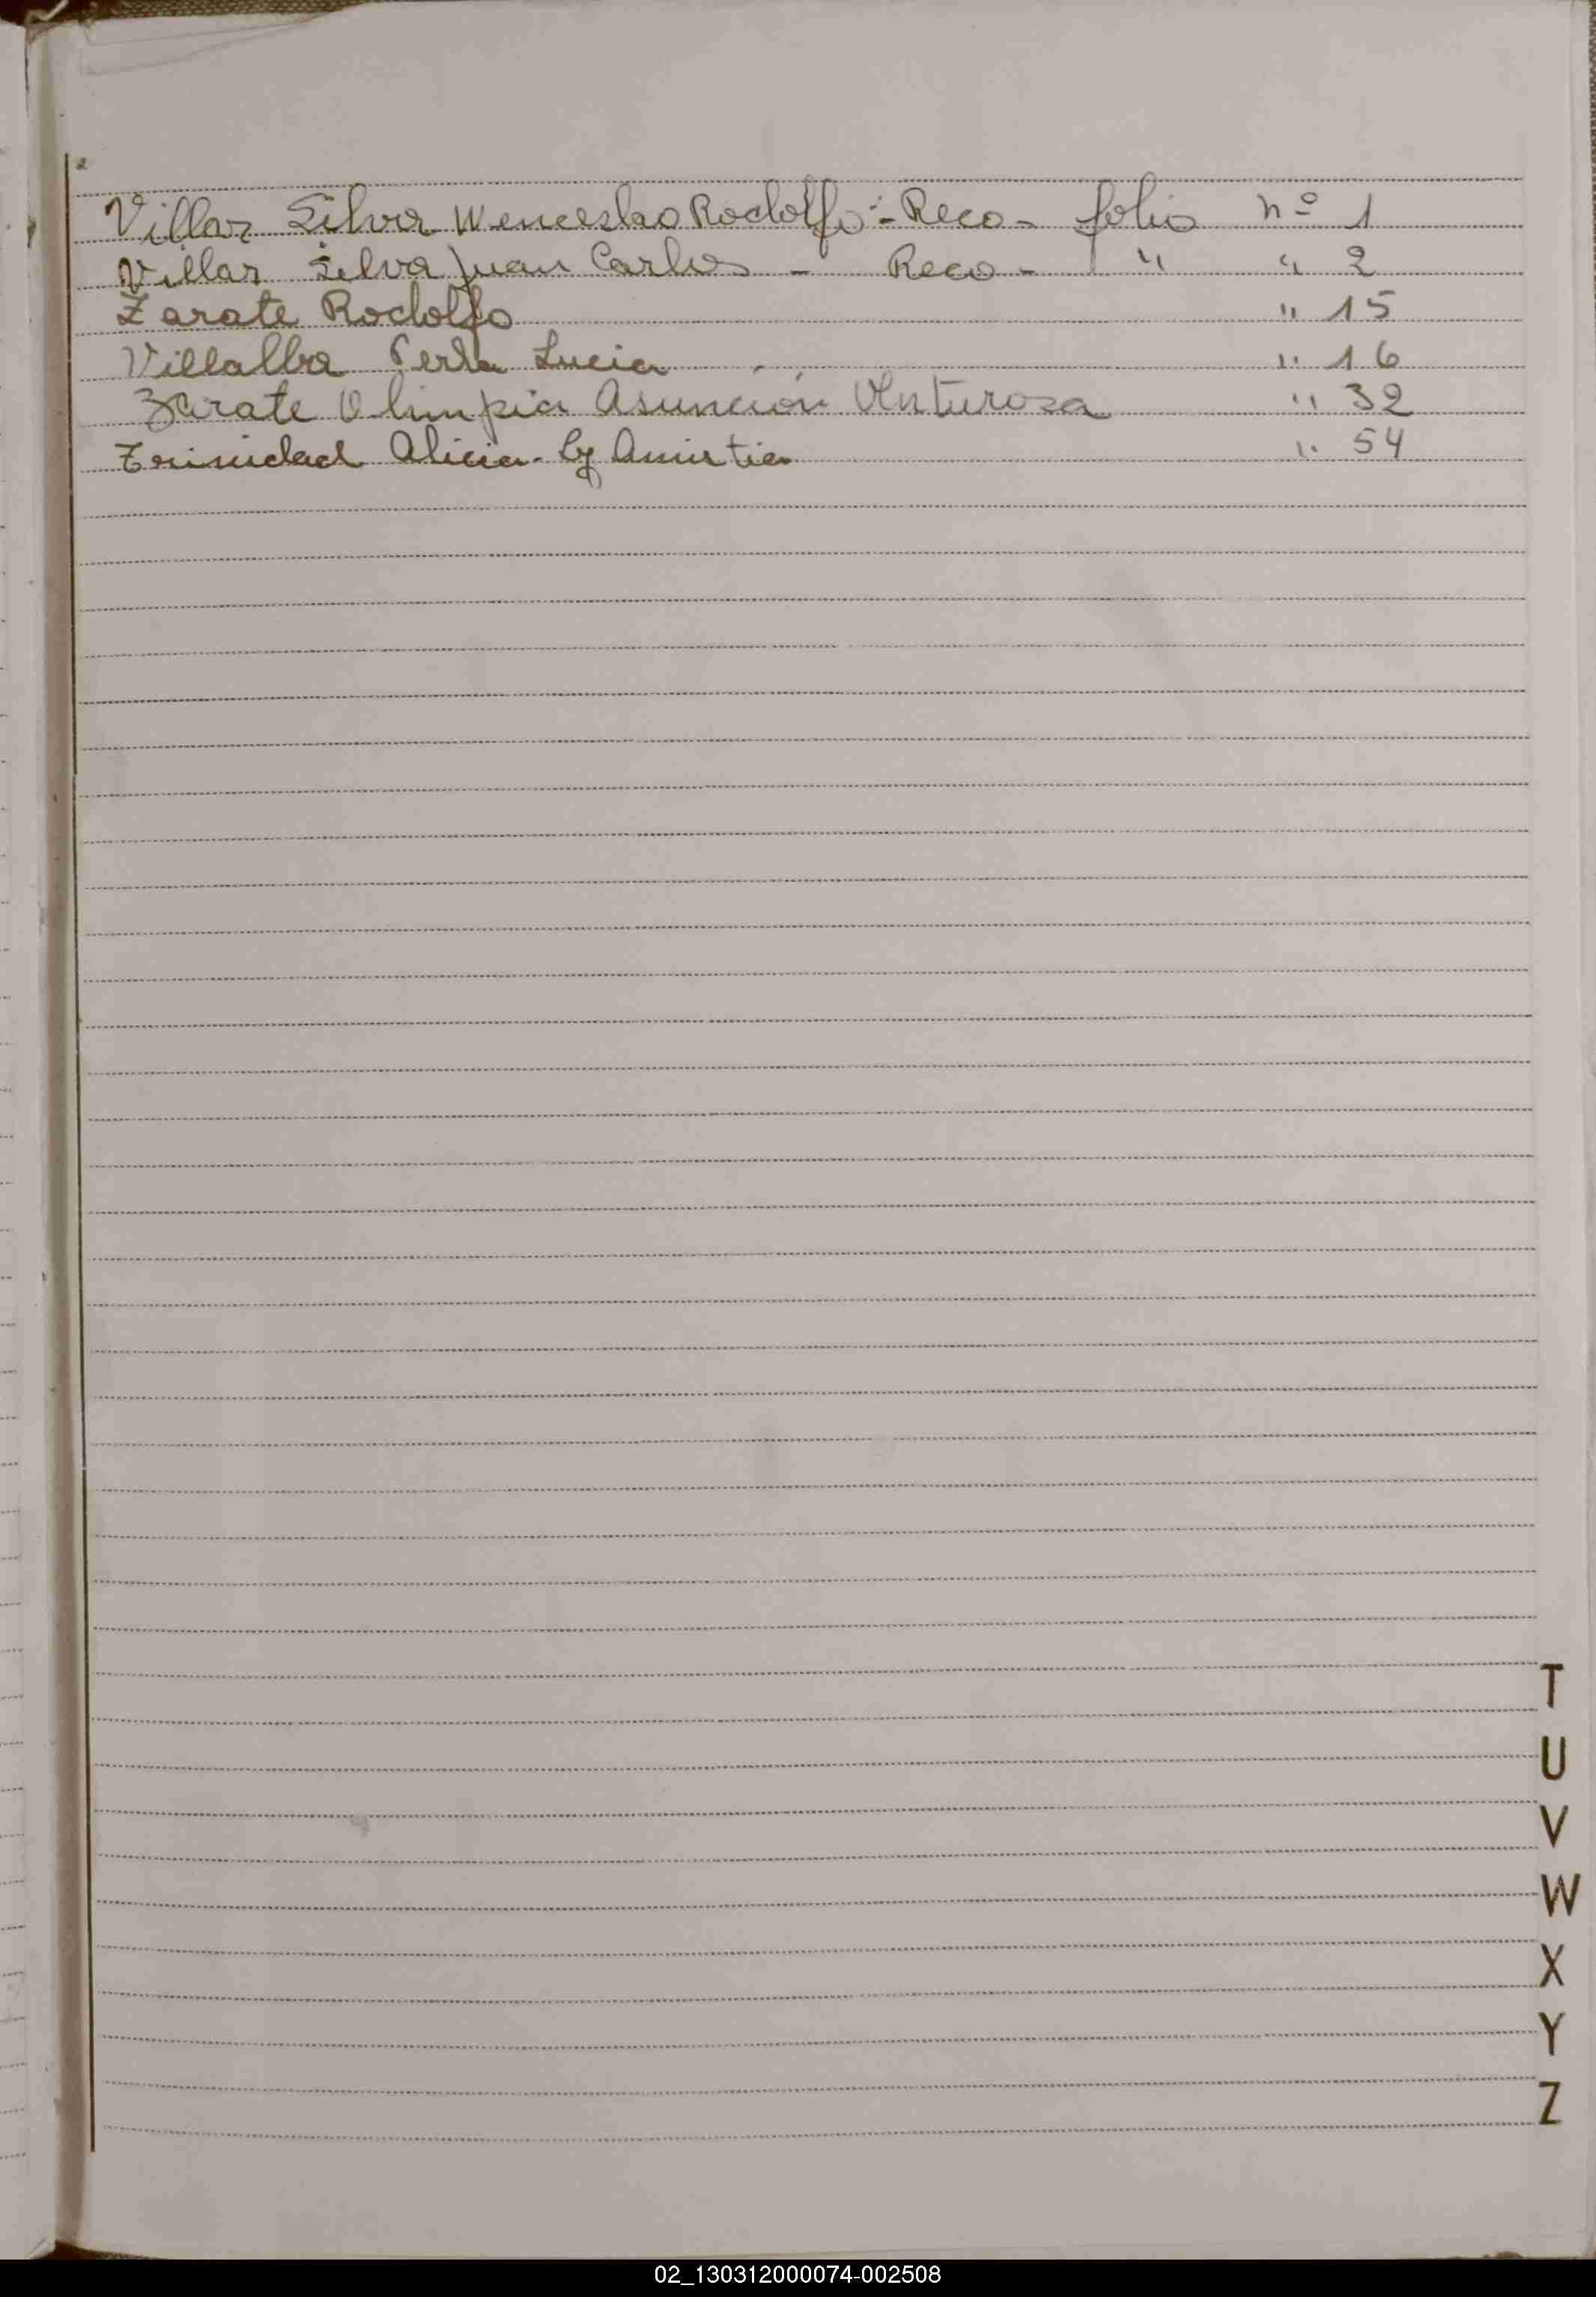 Villar Silva Wenceslao Rodolfo - Reco - folio nº 1
Villar Silva Juan Carlos - Reco - " " 2
Zarate Rodolfo " 15
Villalba Perla Lucia " 16
Zarate Olimpia Asunción Venturosa " 32
Trinidad Alicia - " 54
T
U
V
W
X
Y
Z
02_130312000074-002508